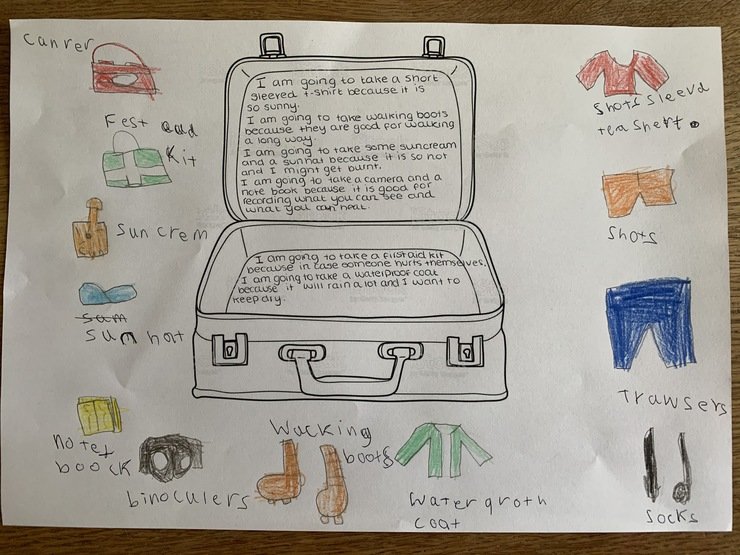 canrer
Fest aad
kit
sun crem
sam
sum hat
notet
boock
binoculers
Wacking
boots
Water groth
coat
I am going to take a short
sleeved t-shirt because it is
so sunny.
I am going to take walking boots
because they are good for walking
a long way.
I am going to take some suncream
and a sunhat because it is so hot
and I might get burnt.
I am going to take a camera and a
note book because it is good for
recording what you can see and
what you can hear.
I am going to take a first aid kit
because in case someone hurts themselves.
I am going to take a waterproof coat
because it will rain a lot and I want to
keep dry.
shots sleevd
tea shert.
shots
trawsers
socks